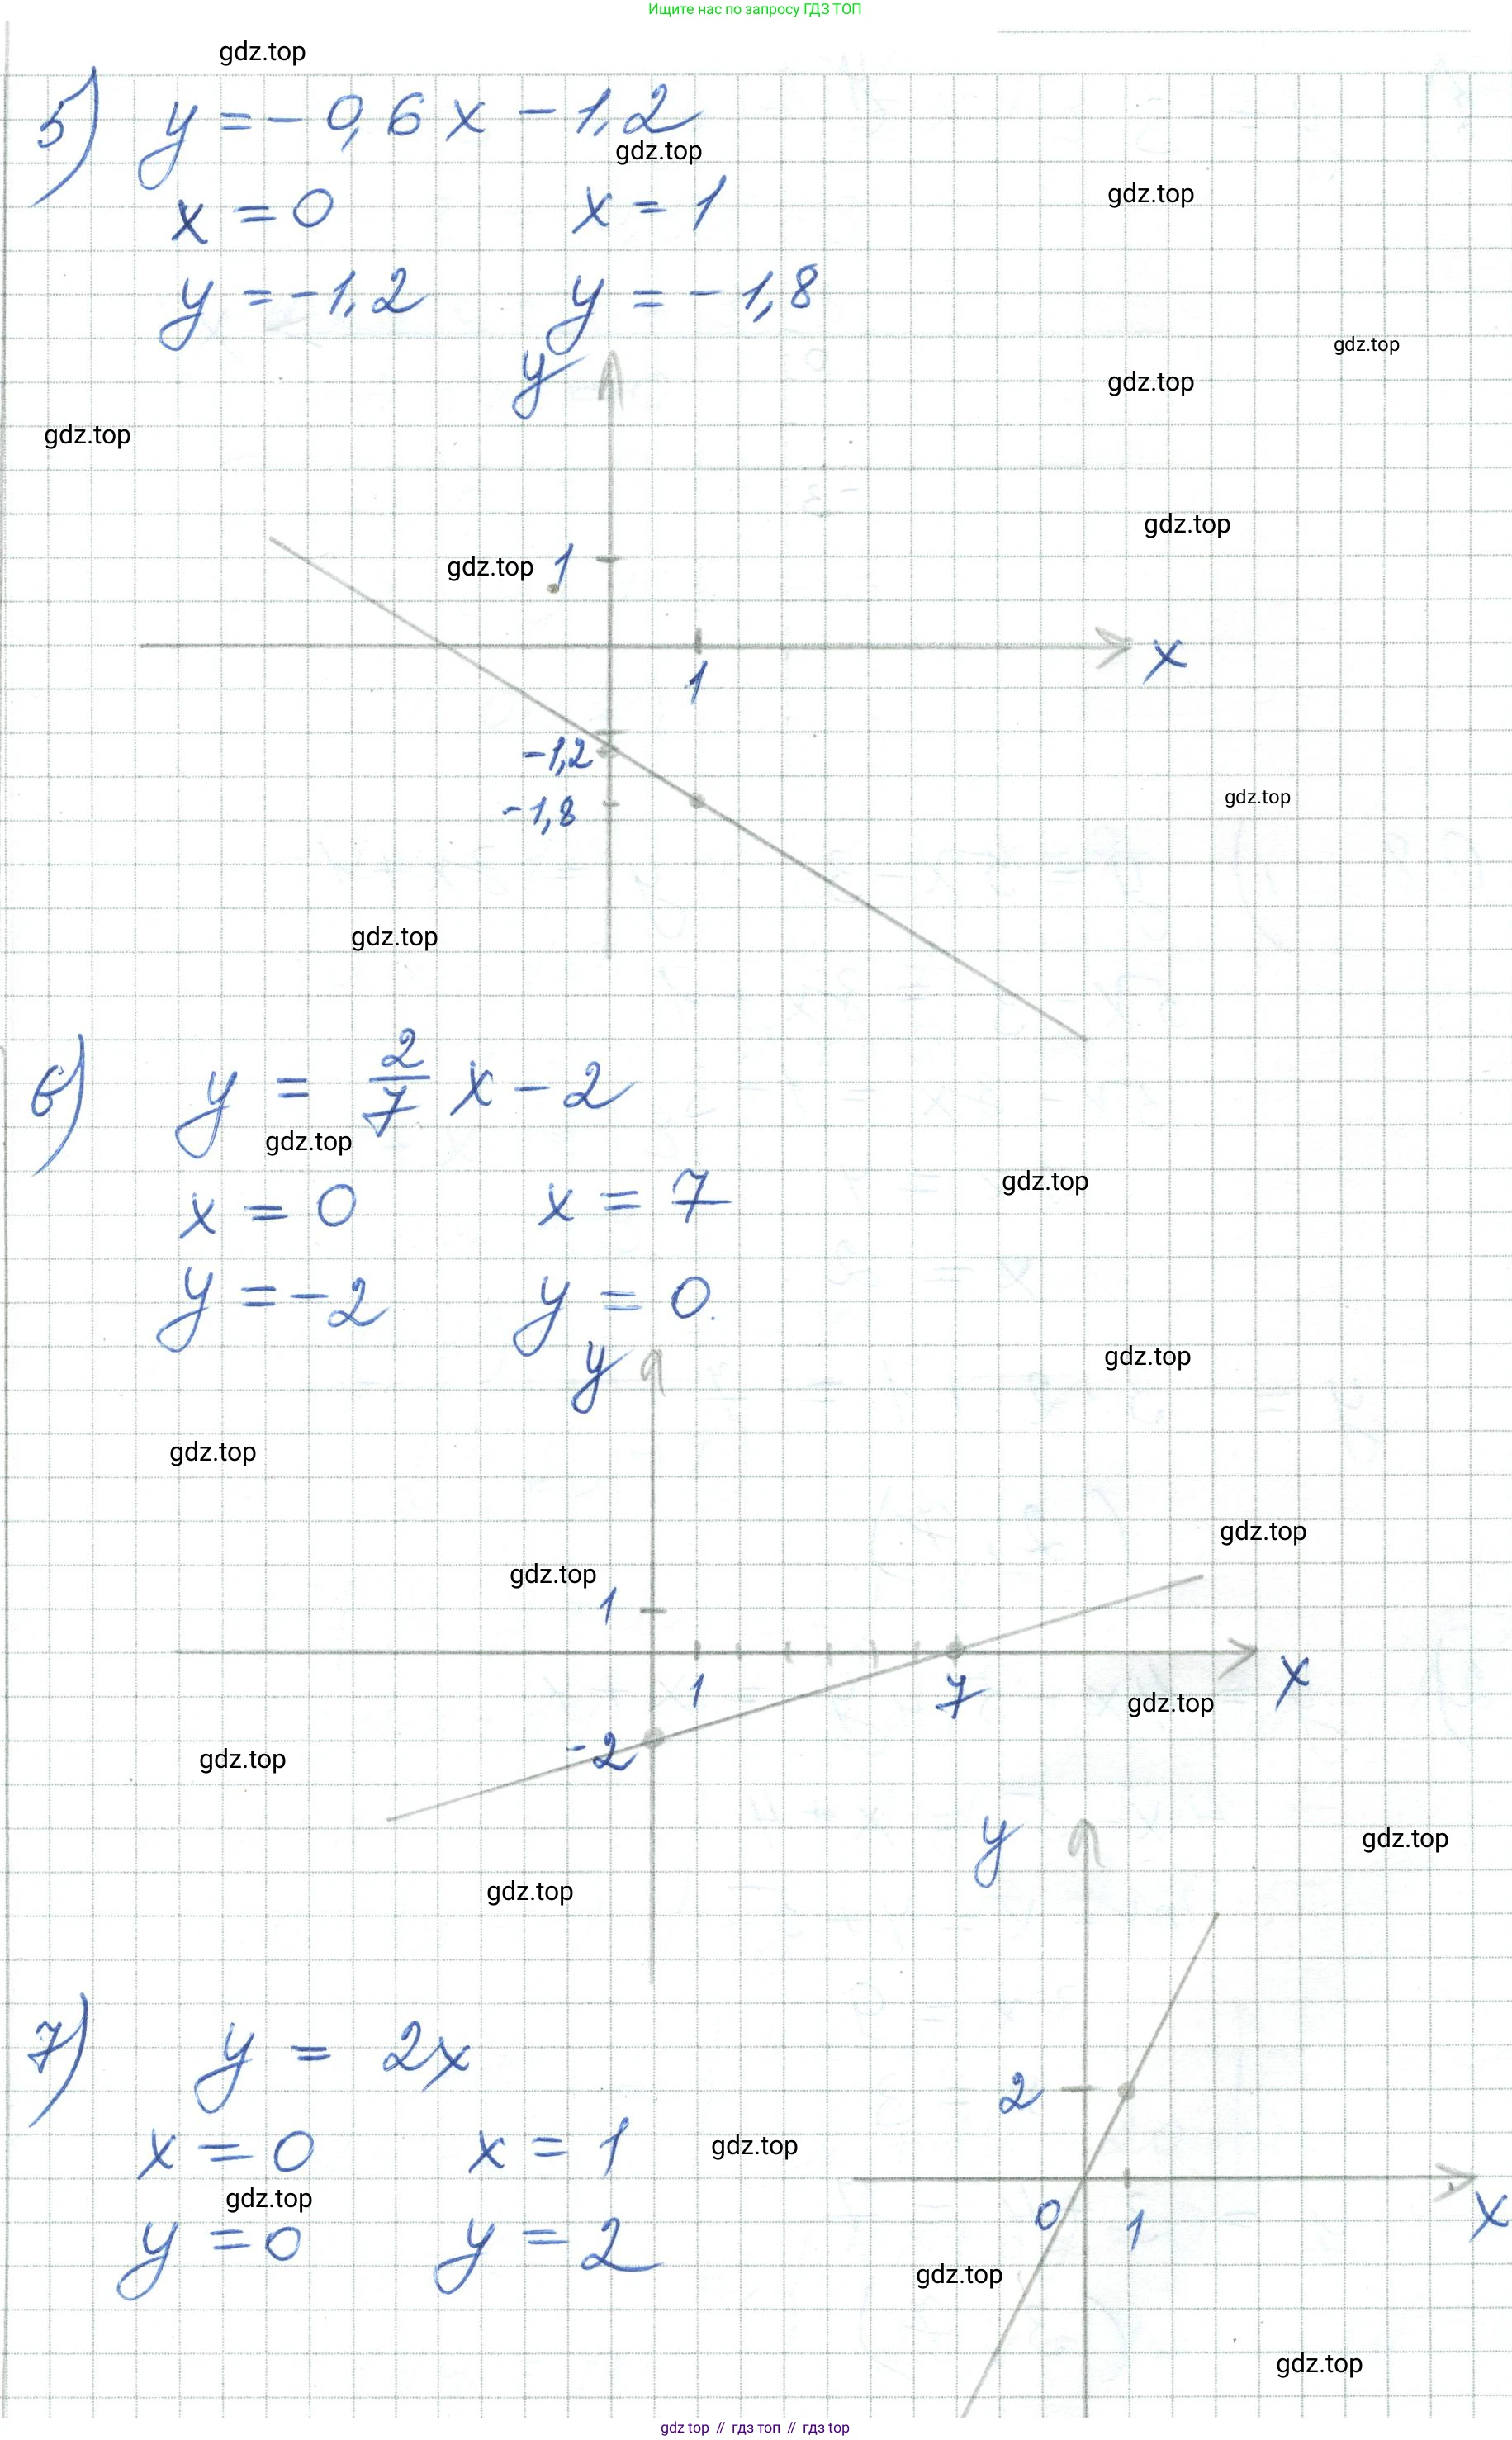 Ищите нас по запросу ГДЗ ТОП
gdz.top
5) y = - 0,6 x - 1,2
gdz.top
gdz.top
x = 0 x = 1
y = -1,2 y = - 1,8
gdz.top
y
gdz.top
gdz.top
gdz.top
gdz.top 1
x
1
-1,2
-1,8
gdz.top
gdz.top
6) y = 2/7 x - 2
gdz.top
gdz.top
x = 0 x = 7
y = -2 y = 0.
y
gdz.top
gdz.top
gdz.top
gdz.top
1
x
1 7
gdz.top
-2
gdz.top
y
gdz.top
gdz.top
7) y = 2x
2
x = 0 x = 1
gdz.top
gdz.top
0 1
x
y = 0 y = 2
gdz.top
gdz.top
gdz top // гдз топ // гдз top